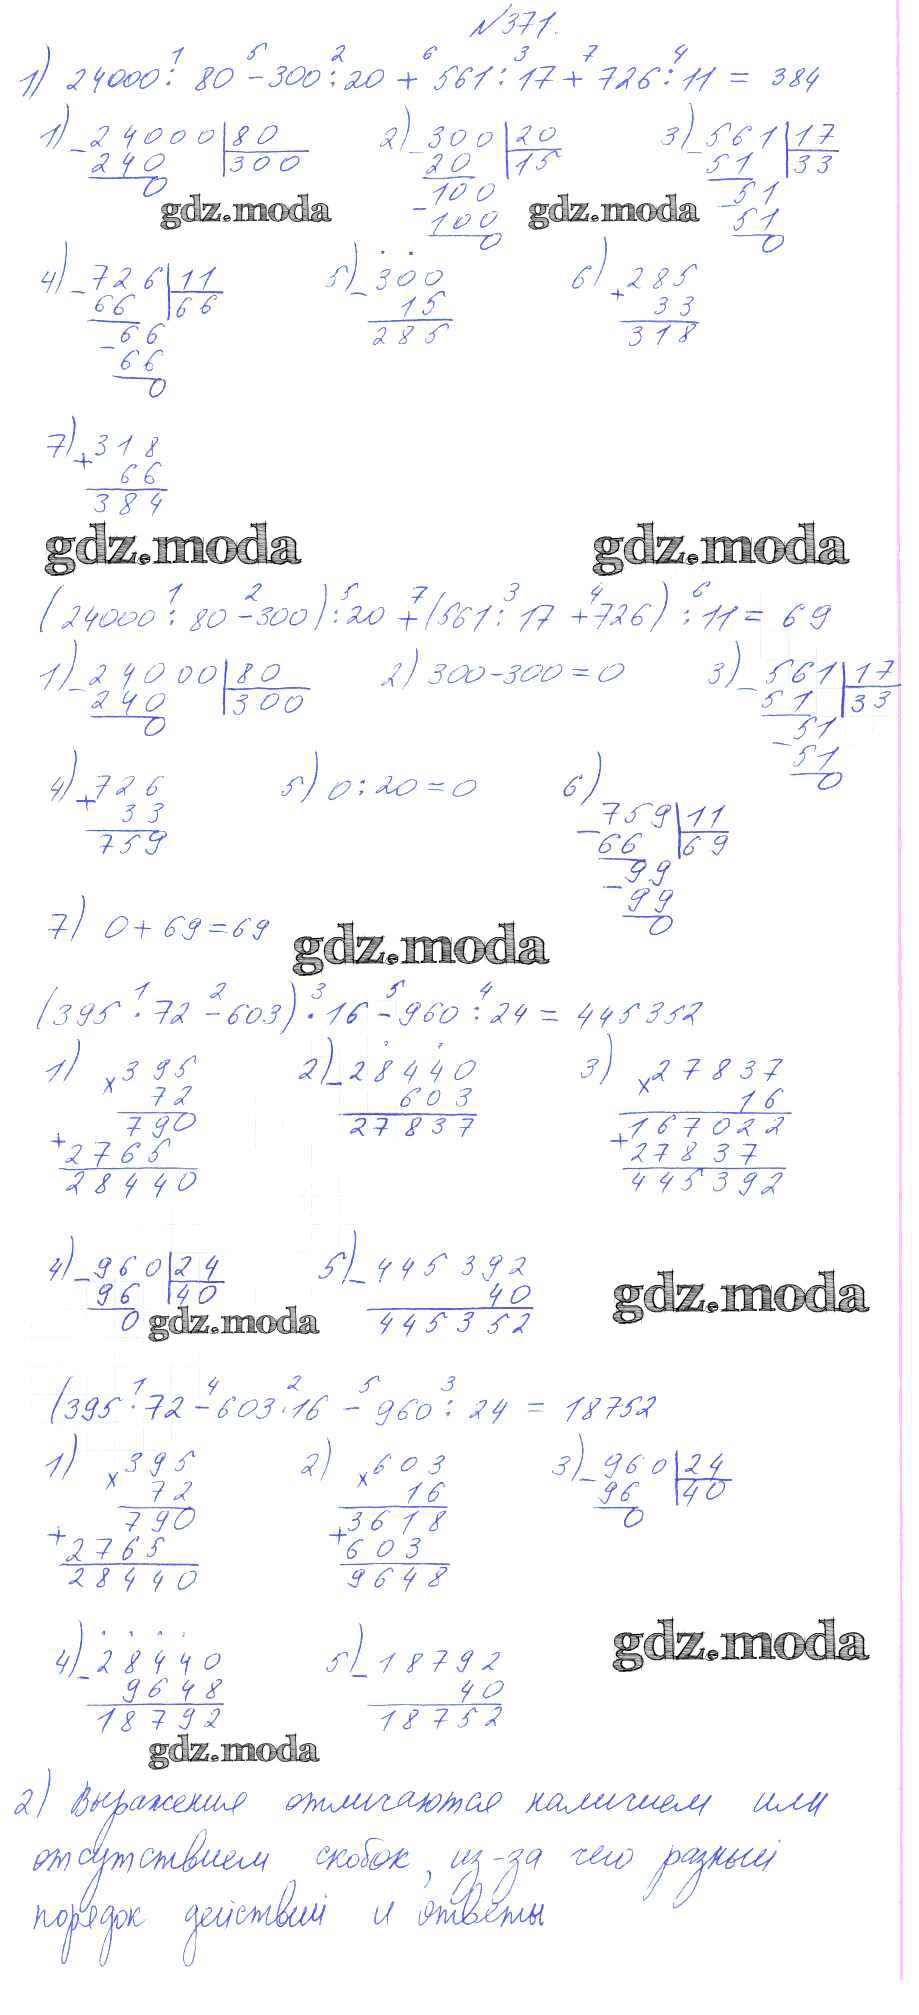 №371.
1 5 2 6 3 7 4
1) 24000 : 80 - 300 : 20 + 561 : 17 + 726 : 11 = 384
1) - 24000 | 80 2) - 300 | 20 3) - 561 | 17
240 300 20 15 51 33
0 - 100 - 51
gdz.moda 100 gdz.moda 51
0 0
4) - 726 | 11 5) - 300 6) + 285
66 66 15 33
- 66 285 318
66
0
7) + 318
66
384
gdz.moda gdz.moda
1 2 5 7 3 4 6
(24000 : 80 - 300) : 20 + (561 : 17 + 726) : 11 = 69
1) - 24000 | 80 2) 300 - 300 = 0 3) - 561 | 17
240 300 51 33
0 - 51
51
0
4) + 726 5) 0 : 20 = 0 6) - 759 | 11
33 66 69
759 - 99
99
0
7) 0 + 69 = 69 gdz.moda
1 2 3 5 4
(395 · 72 - 603) · 16 - 960 : 24 = 445352
1) × 395 2) - 28440 3) × 27837
72 603 16
790 27837 167022
+ 2765 + 27837
28440 445392
4) - 960 | 24 5) - 445392
96 40 40 gdz.moda
0 gdz.moda 445352
1 4 2 5 3
(395 · 72 - 603 · 16 - 960 : 24 = 18752
1) × 395 2) × 603 3) - 960 | 24
72 16 96 40
790 3618 0
+ 2765 + 603
28440 9648
4) - 28440 5) - 18792 gdz.moda
9648 40
18792 18752
gdz.moda
2) Выражения отличаются наличием или
отсутствием скобок, из-за чего разный
порядок действий и ответы